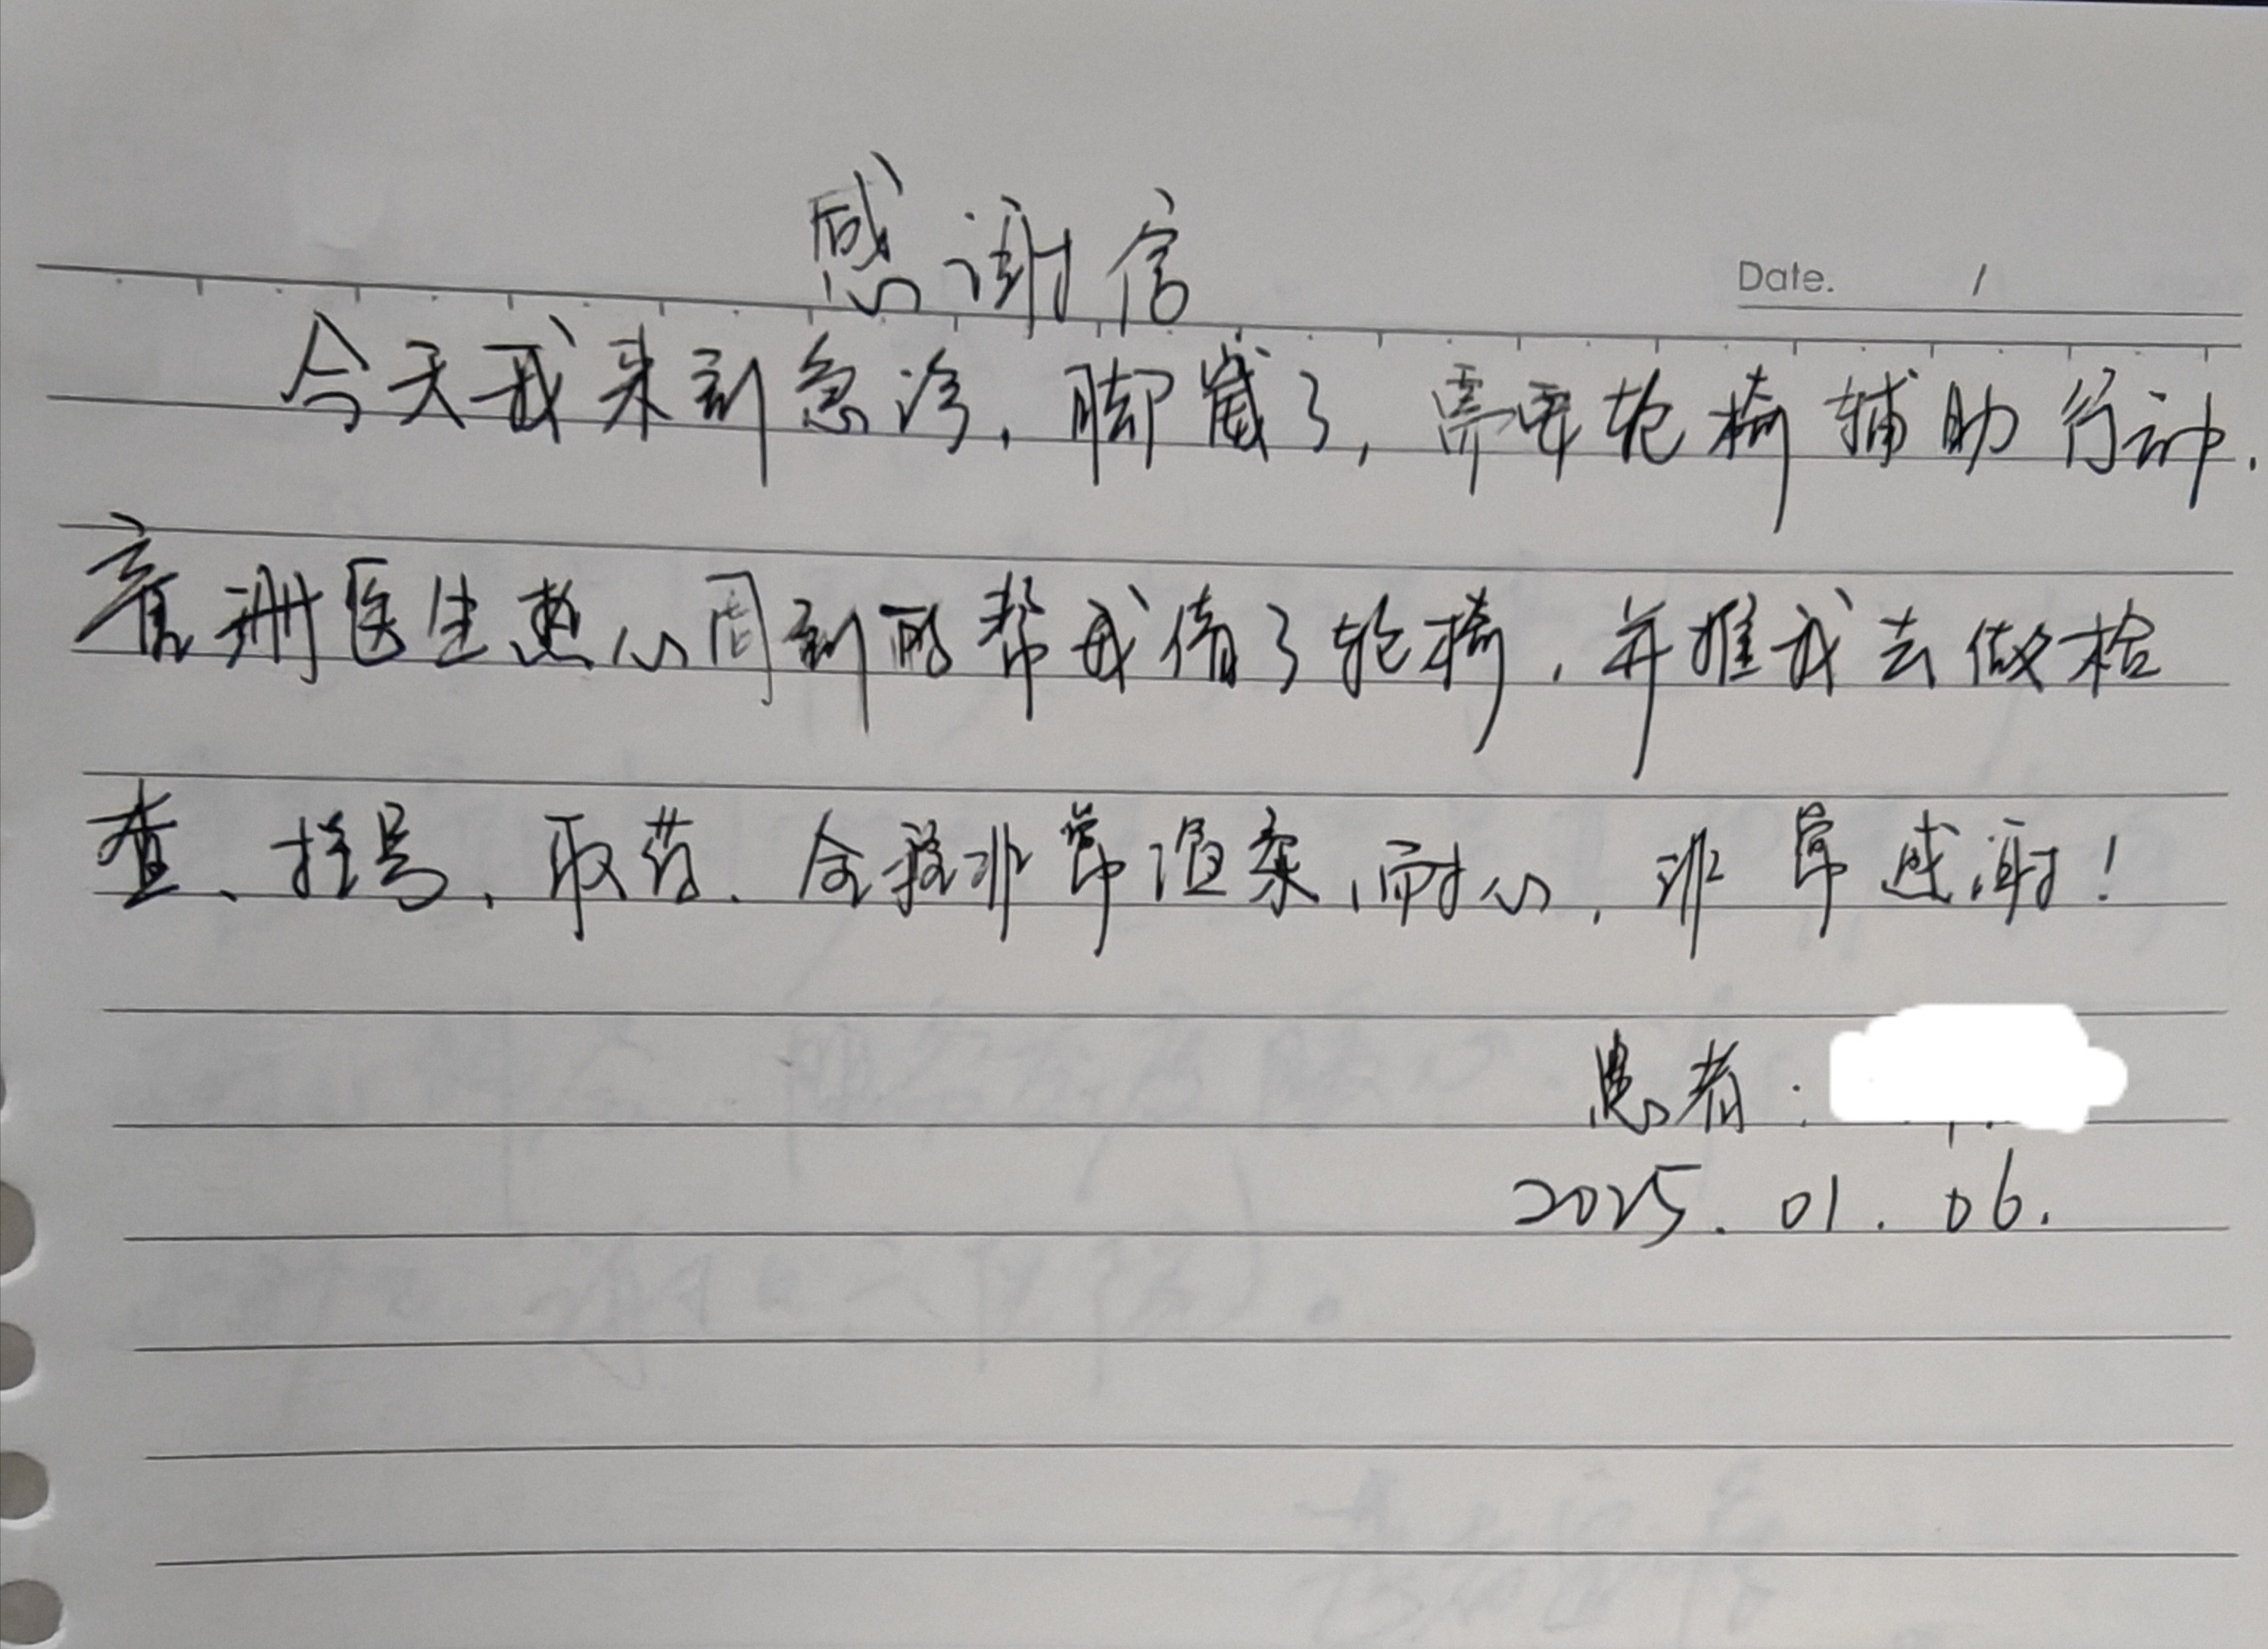 感谢信
Date. /
今天我来到急诊，脚崴了，需要轮椅辅助行动.
珊医生热心周到的帮我借了轮椅，并推我去做检
查、挂号、取药、全程非常温柔，耐心，非常感谢！
患者：
2025.01.06.